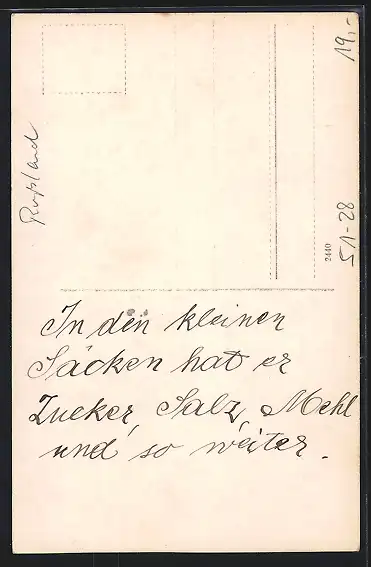 19,-
Rußland
51-28
2440
In den kleinen
Säcken hat er
Zucker, Salz, Mehl
und so weiter.